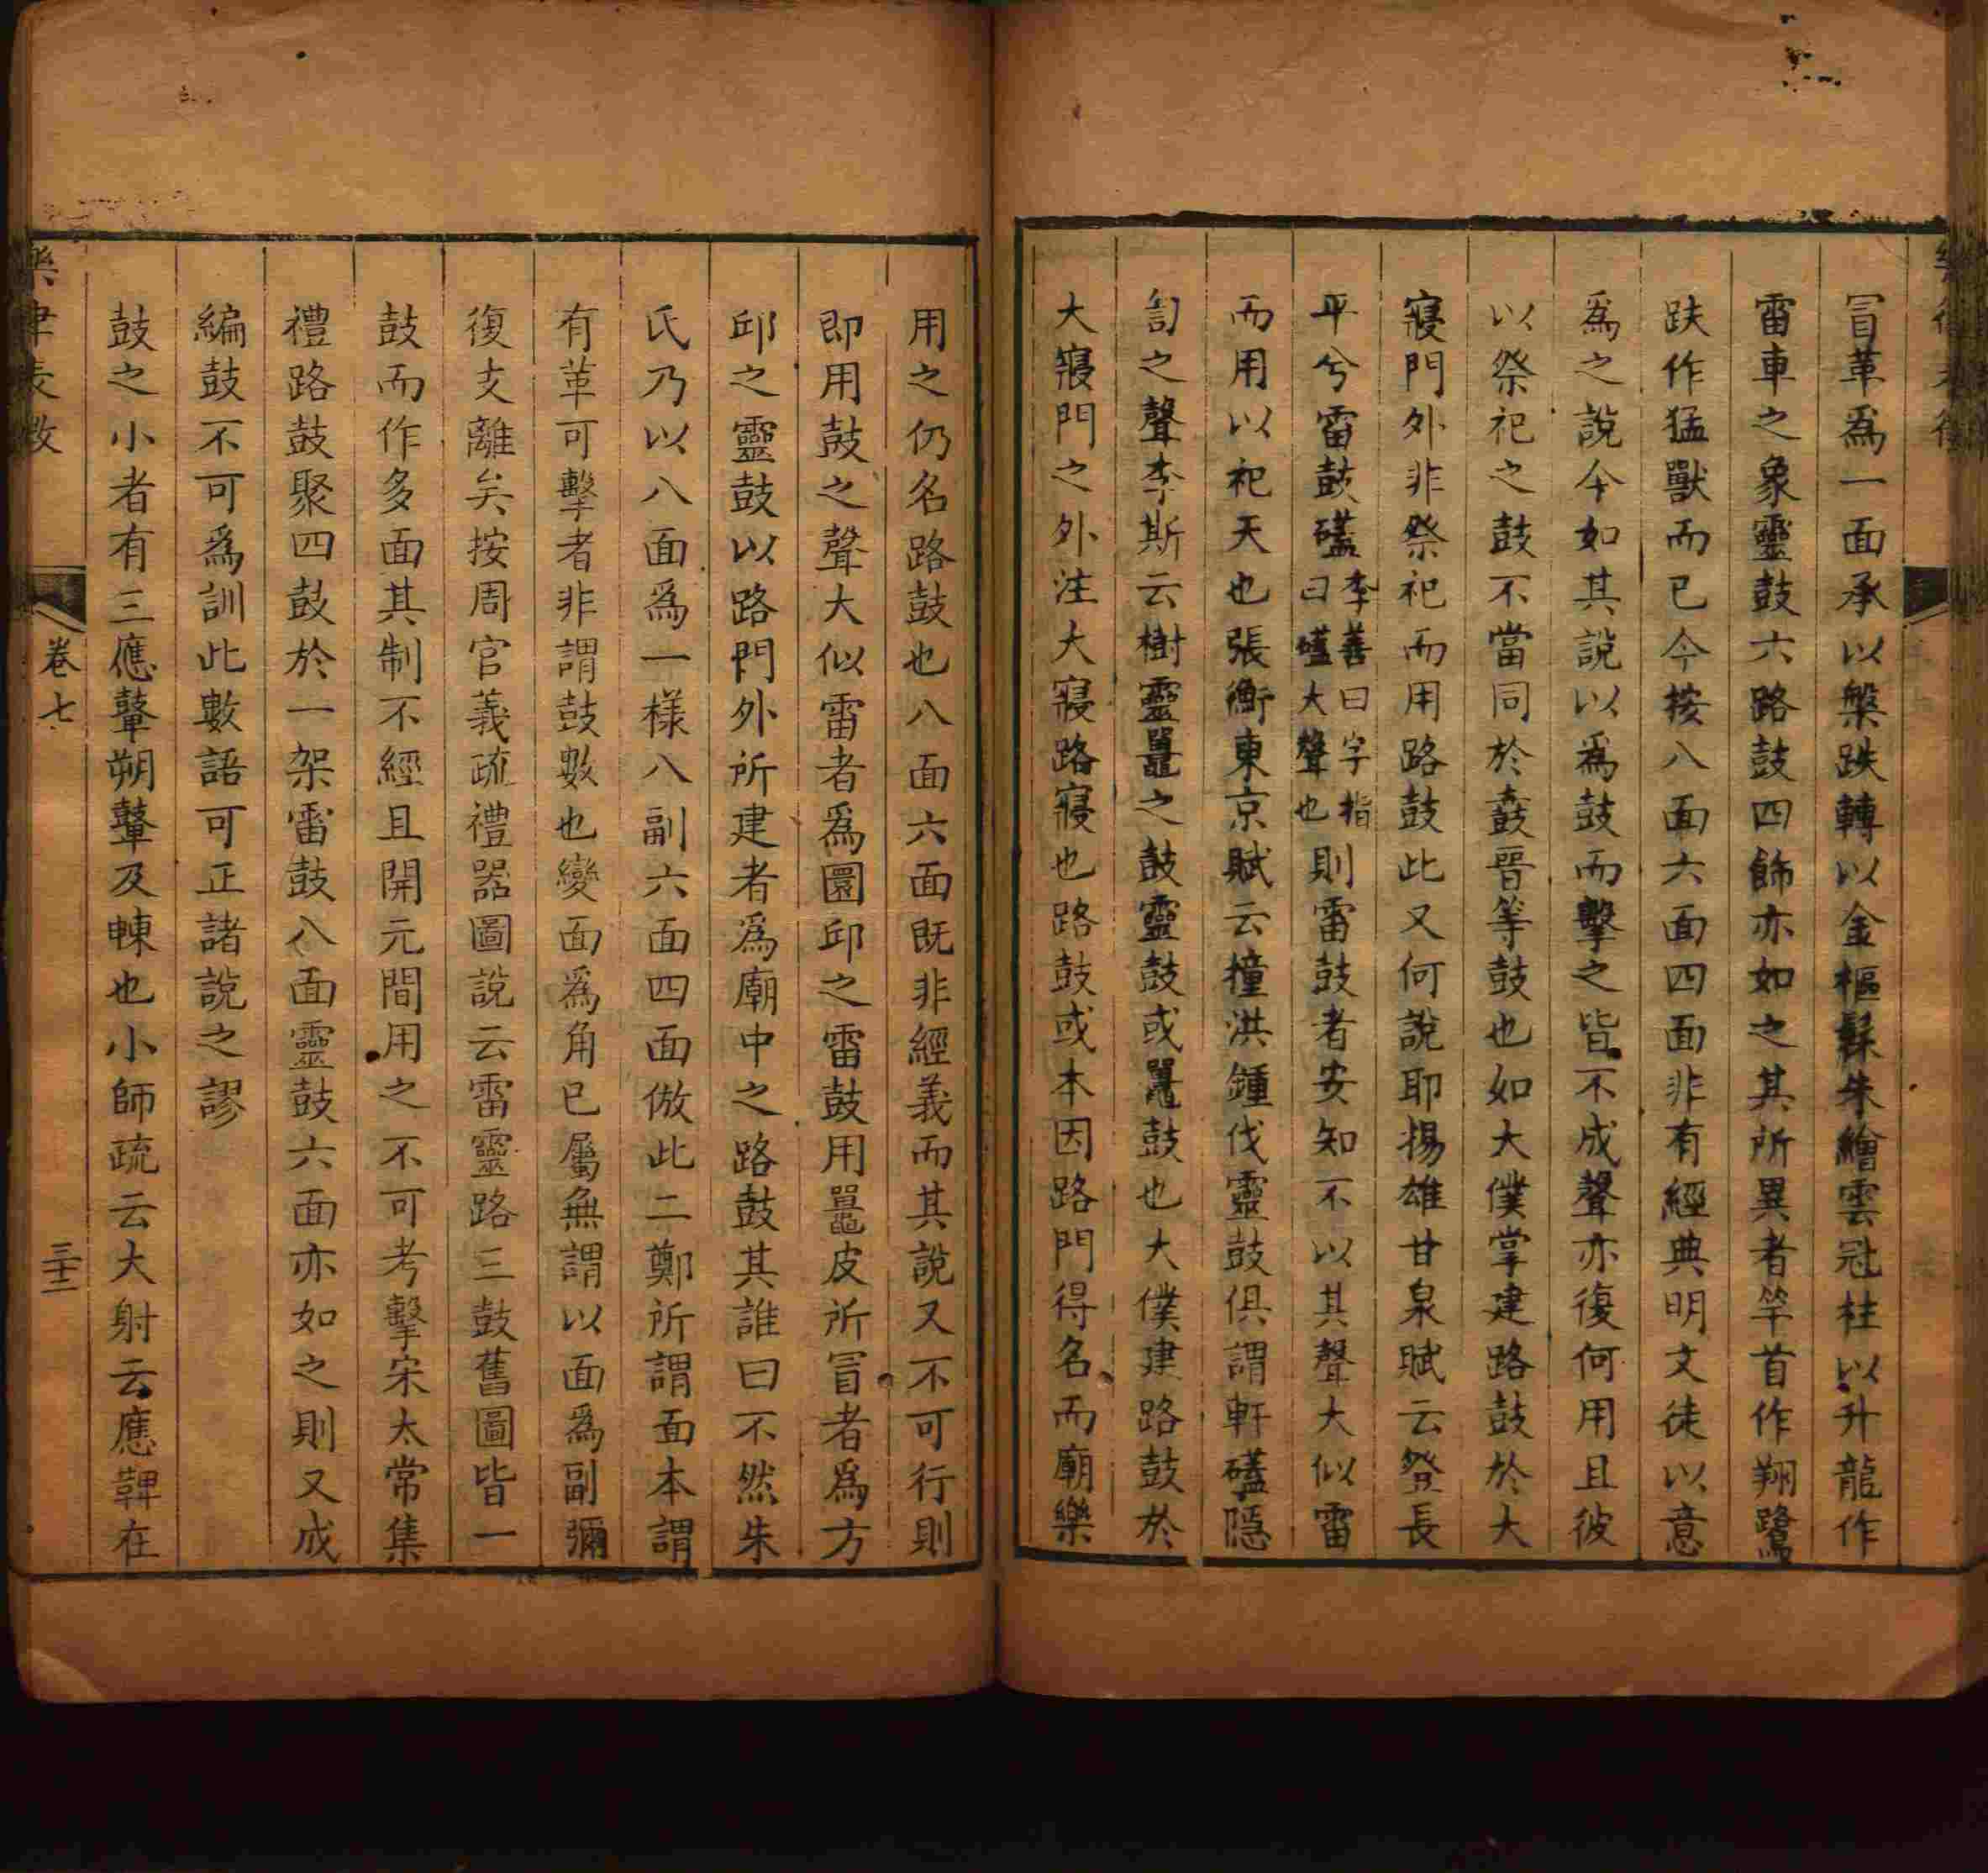 冒革爲一面承以槃趺轉以金樞髹朱繪雲冠柱以升龍作
雷車之象靈鼓六路鼓四飾亦如之其所異者竿首作翔鷺
趺作猛獸而已今按八面六面四面非有經典明文徒以意
爲之說今如其說以爲鼓而擊之皆不成聲亦復何用且彼
以祭祀之鼓不當同於鼖晉等鼓也如大僕掌建路鼓於大
寢門外非祭祀而用路鼓此又何說耶揚雄甘泉賦云登長
平兮雷鼓礚李善曰字指曰礚大聲也則雷鼓者安知不以其聲大似雷
而用以祀天也張衡東京賦云撞洪鍾伐靈鼓俱謂軒礚隱
訇之聲李斯云樹靈鼉之鼓靈鼓或鼉鼓也大僕建路鼓於
大寢門之外注大寢路寢也路鼓或本因路門得名而廟樂
用之仍名路鼓也八面六面既非經義而其說又不可行則
即用鼓之聲大似雷者爲圜邱之雷鼓用鼉皮所冒者爲方
邱之靈鼓以路門外所建者爲廟中之路鼓其誰曰不然朱
氏乃以八面爲一樣八副六面四面倣此二鄭所謂面本謂
有革可擊者非謂鼓數也變面爲角已屬無謂以面爲副彌
復支離矣按周官義疏禮器圖說云雷靈路三鼓舊圖皆一
鼓而作多面其制不經且開元間用之不可考擊宋太常集
禮路鼓聚四鼓於一架雷鼓八面靈鼓六面亦如之則又成
編鼓不可爲訓此數語可正諸說之謬
鼓之小者有三應鼙朔鼙及朄也小師疏云大射云應鞞在
樂律表微
卷七
三十二